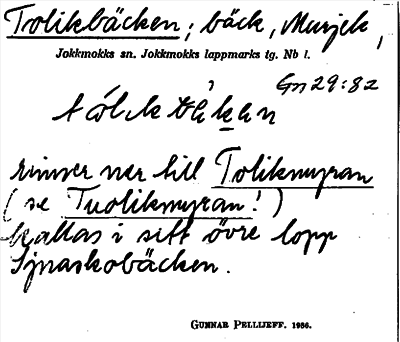 Tolikbäcken; bäck, Murjek,
Jokkmokks sn. Jokkmokks lappmarks tg. Nb l.
Gn 29:82
rinner ner till Tolikmyran
(se Tuolikmyran!)
kallas i sitt övre lopp
Sjnaskobäcken.
GUNNAR PELLIJEFF. 1956.